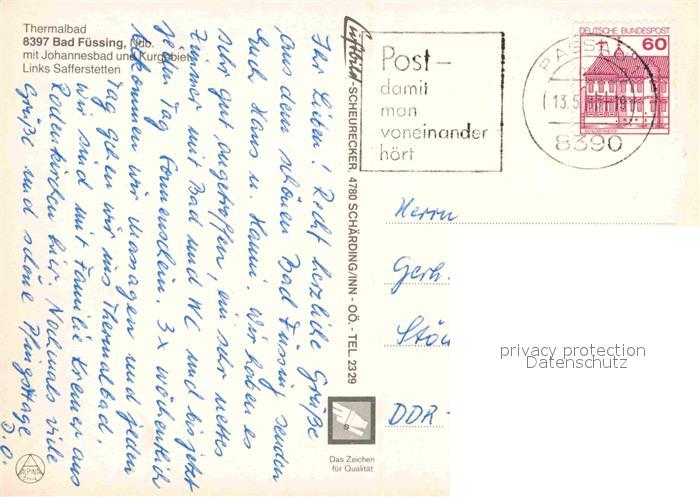 Thermalbad
8397 Bad Füssing, Ndb.
mit Johannesbad und Kurgebiet
Links Safferstetten
Luftbild-SCHEURECKER, 4780 SCHÄRDING/INN - OÖ. - TEL. 2329
Post-
damit
man
voneinander
hört
DEUTSCHE BUNDESPOST
60
PASSAU
13.5.
8390
Ihr Lieben! Recht herzliche Grüße
aus dem schönen Bad Füssing senden
Euch Hans u. Hanni. Wir haben es
sehr gut angetroffen, ein sehr nettes
Zimmer mit Bad und WC und bis jetzt
jeden Tag Sonnenschein. 3x wöchentlich
bekommen wir Massagen und jeden
Tag gehen wir ins Thermalbad.
Wir sind mit Familie Kremer aus
Rodenkirchen hier. Nochmals viele
Grüße und schöne Pfingsttage
D.O.
Herrn
Gerh.
DDR-
Das Zeichen
für Qualität
ALPINA
Druck
privacy protection
Datenschutz